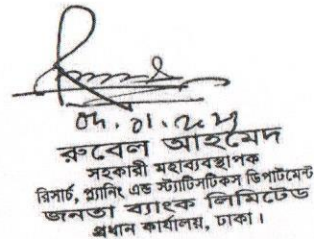 রুবেল আহমেদ
সহকারী মহাব্যবস্থাপক
রিসার্চ, প্ল্যানিং এন্ড স্ট্যাটিসটিকস ডিপার্টমেন্ট
জনতা ব্যাংক লিমিটেড
প্রধান কার্যালয়, ঢাকা।